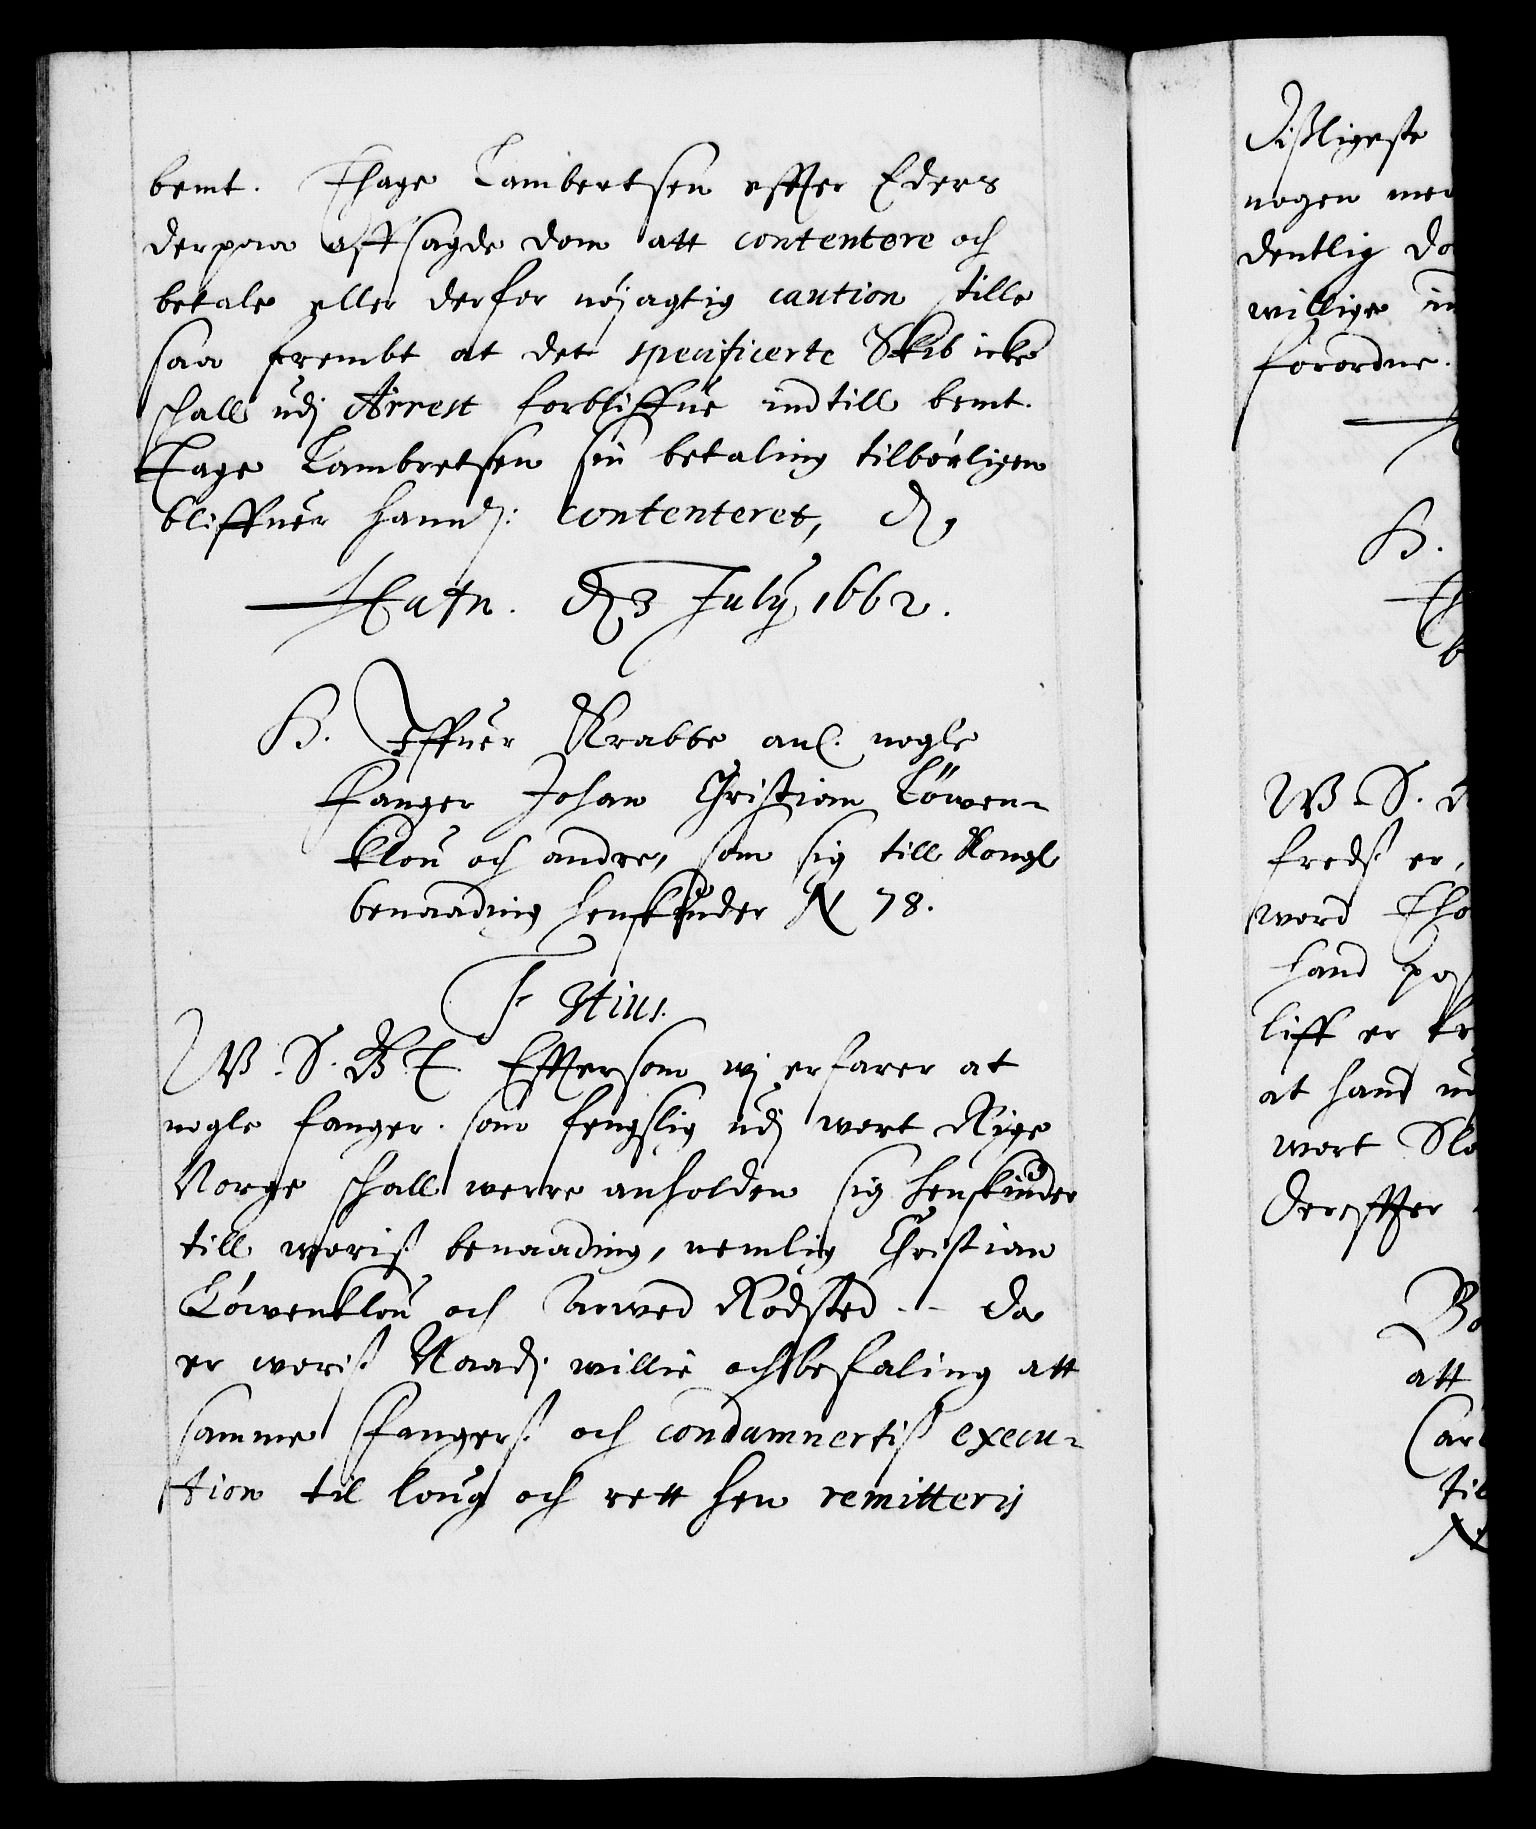 bemt. Thage Lambertsen effter Eders
derpaa affsagde dom att contentere och
betale eller derfor nöjagtig caution stille
saa frembt at det specificerte Skib icke
schall udj Arrest forbliffue indtill bemt.
Tage Lambretsen sin betaling tilbörligen
bliffuer hannd: contenteret,
Hafn. d 3 July 1662.
H. Iffuer Krabbe anl. nogle
fanger Johan Christian Löwen-
klou och andre, som sig till Kongl
benaading henskiuder N 78.
F Stius.
W. S. G. T. Effterson wj erfarer at
nogle fanger som fengslig udj wort Rige
Norge schall werre anholden sig henskiuder
till woris benaading, nemlig Christian
Löwenklou och Arwed Rodsted - da
er woriß Naad: willie och befaling att
samme fangerß och condamnertiß execu-
tion til loug och rett hen remitteris
Dißligeste
nogen
dentlig
willige
forordne.
H.
W. S.
fredß er,
word
hand
liff er
at hand
wort
Dereffter
att